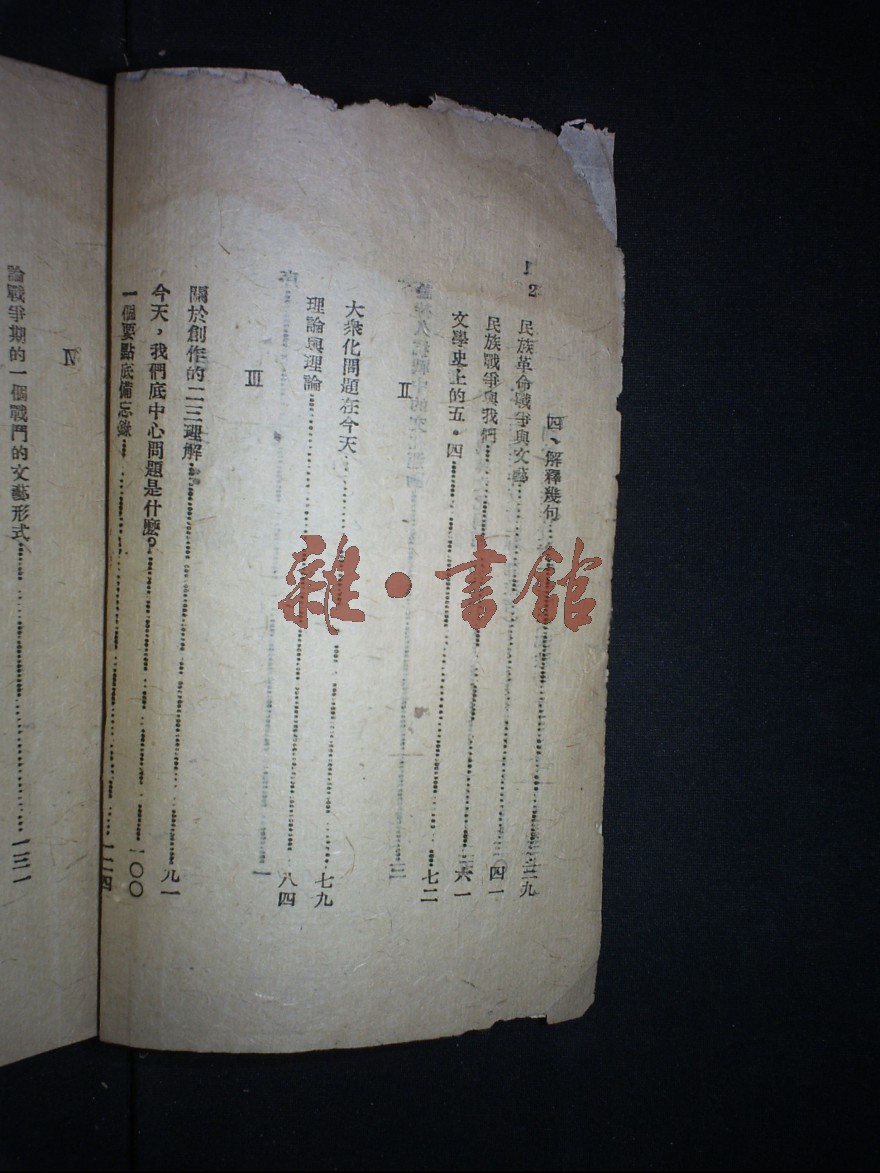 1 2
四、解釋幾句……三九
民族革命戰爭與文藝……四一
民族戰爭與我們……六一
文學史上的五·四……七二
II
大衆化問題在今天……七九
理論與理論……八四
III
關於創作的二三理解……九一
今天，我們底中心問題是什麽？……一〇〇
一個要點底備忘錄……一二四
IV
論戰爭期的一個戰鬥的文藝形式……一三一
雜·書館